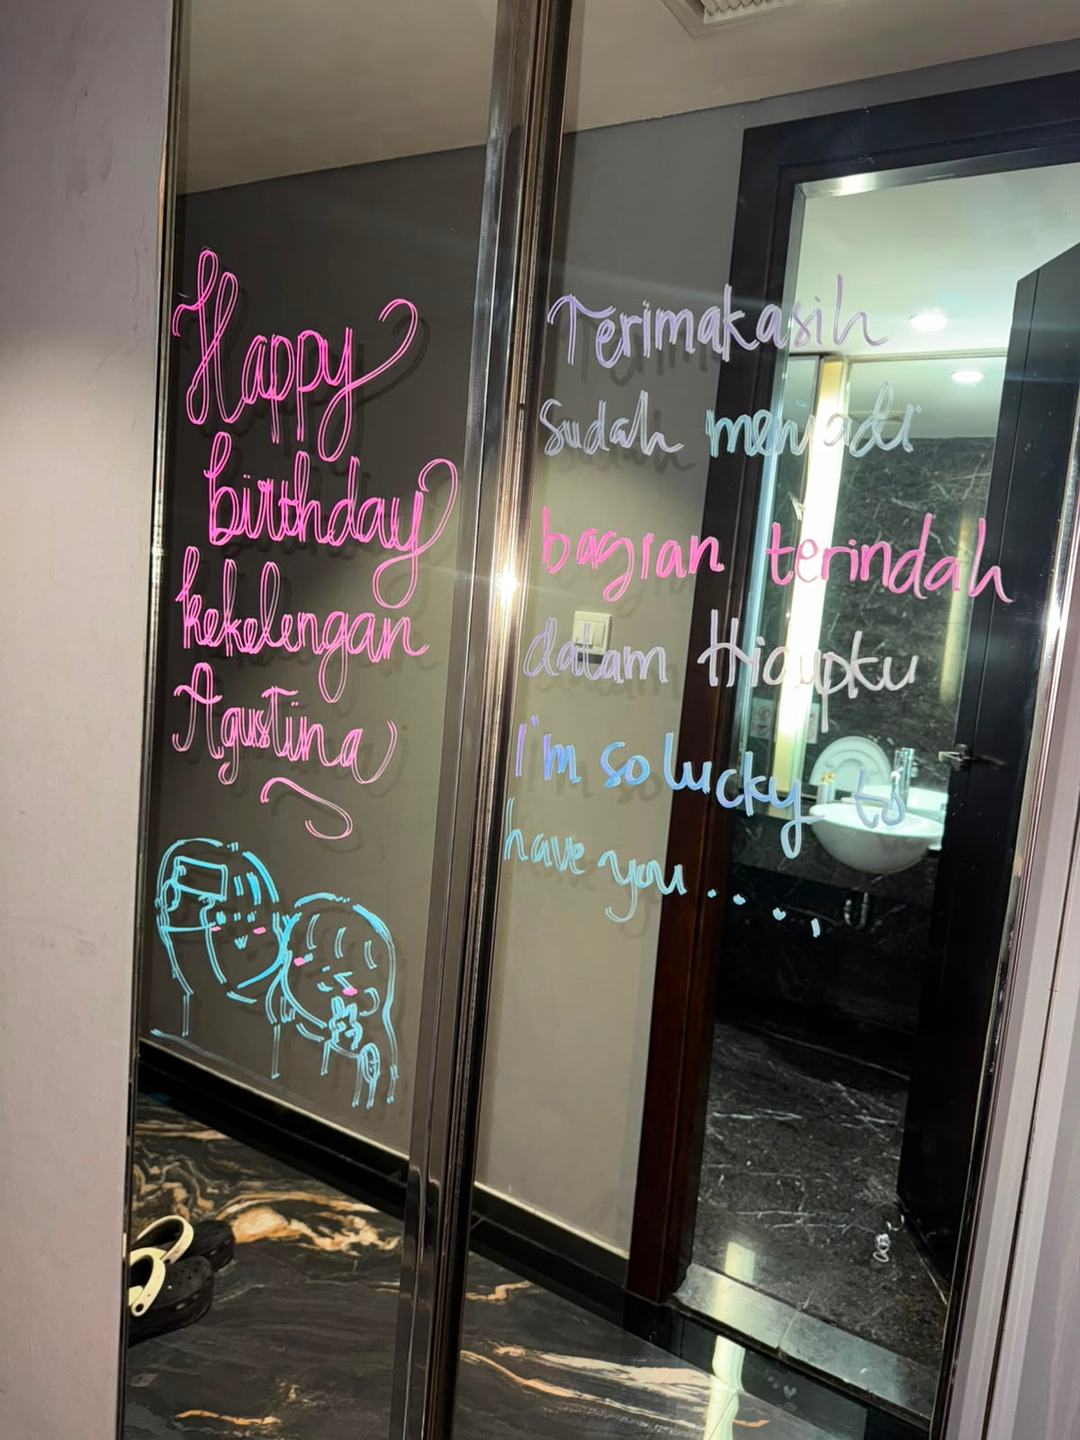 Happy
birthday
kekelengan
Agustina
Terimakasih
sudah menjadi
bagian terindah
dalam Hidupku
I'm so lucky to
have you .....